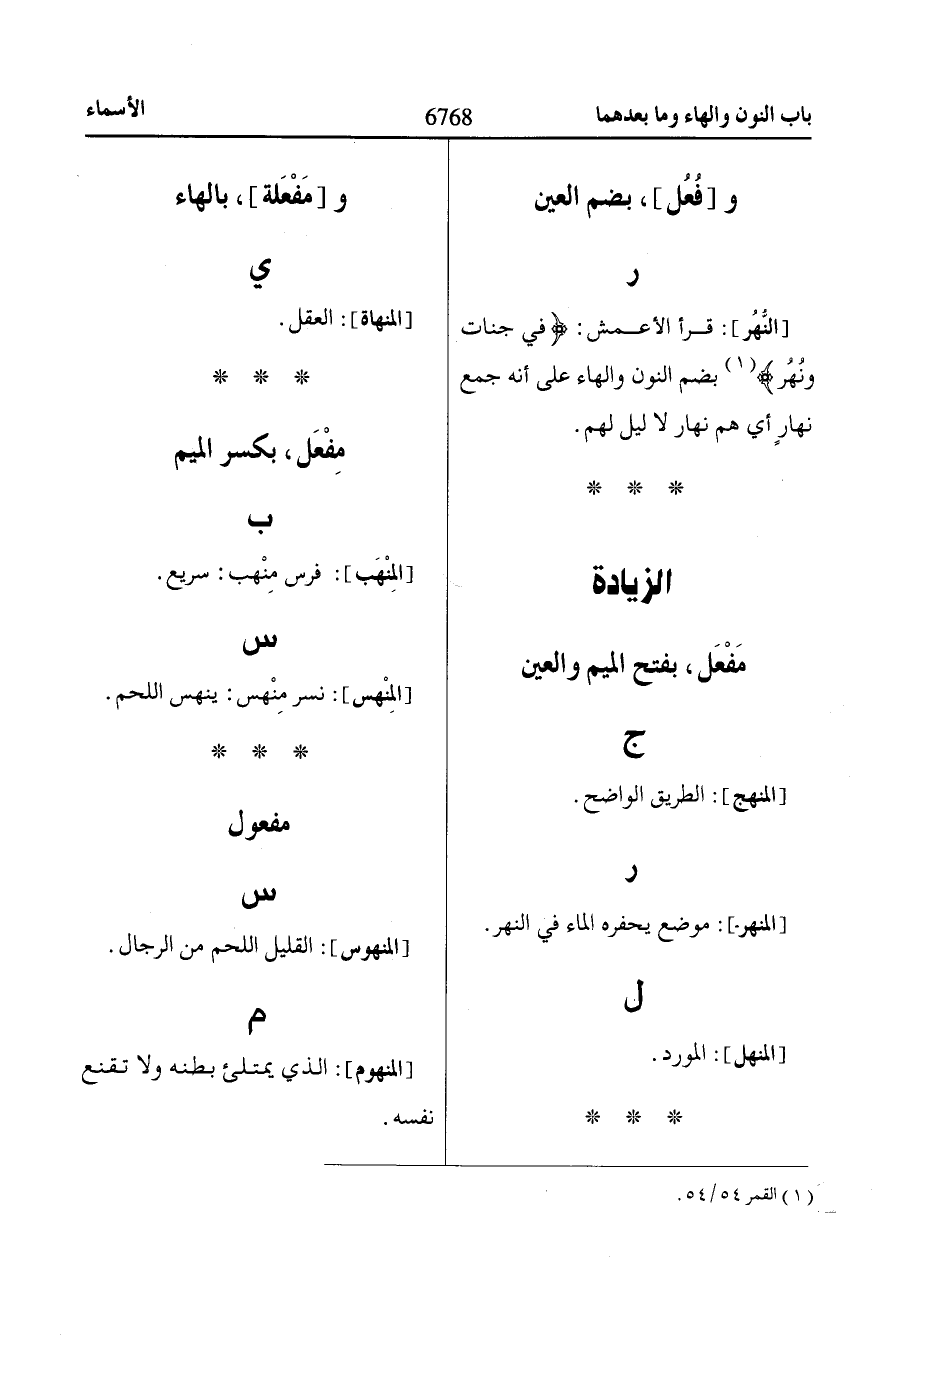 باب النون والهاء وما بعدهما
6768
الأسماء
و [فُعُل]، بضم العين
ر
[النُّهُر]: قـرأ الأعـمش: ﴿في جنات
ونُهُر﴾(١) بضم النون والهاء على أنه جمع
نهارٍ أي هم نهار لا ليل لهم.
* * *
الزيادة
مَفْعَل، بفتح الميم والعين
ج
[المنهج]: الطريق الواضح.
ر
[المنهر]: موضع يحفره الماء في النهر.
ل
[المنهل]: المورد.
* * *
و [مَفْعَلة]، بالهاء
ي
[المنهاة]: العقل.
* * *
مِفْعَل، بكسر الميم
ب
[المِنْهَب]: فرس مِنْهب: سريع.
س
[المِنْهس]: نسر مِنْهس: ينهس اللحم.
* * *
مفعول
س
[المنهوس]: القليل اللحم من الرجال.
م
[المنهوم]: الذي يمتلئ بطنه ولا تقنع
نفسه.
(١) القمر ٥٤/٥٤.